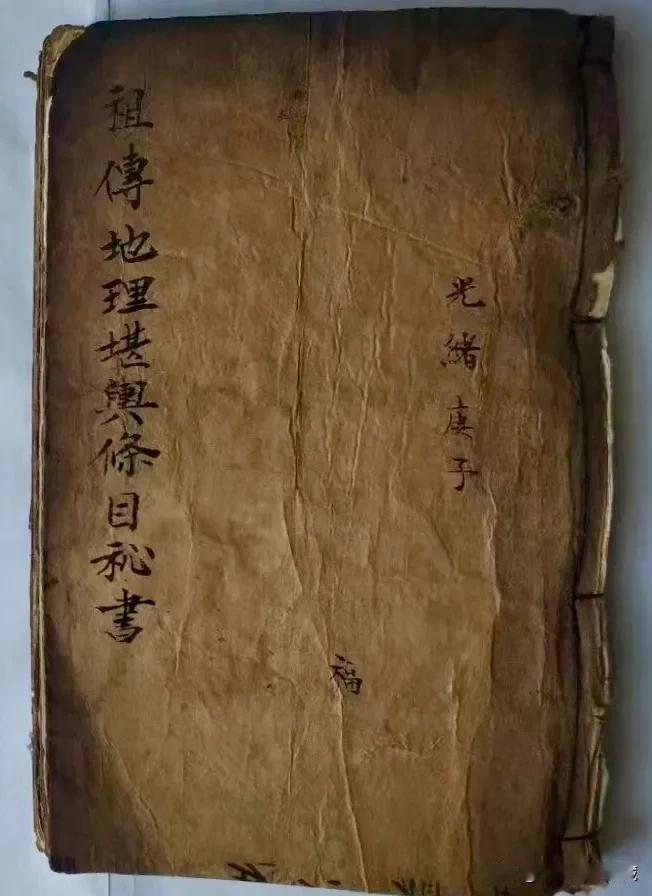 光緒庚子
福
祖傳地理堪輿條目秘書